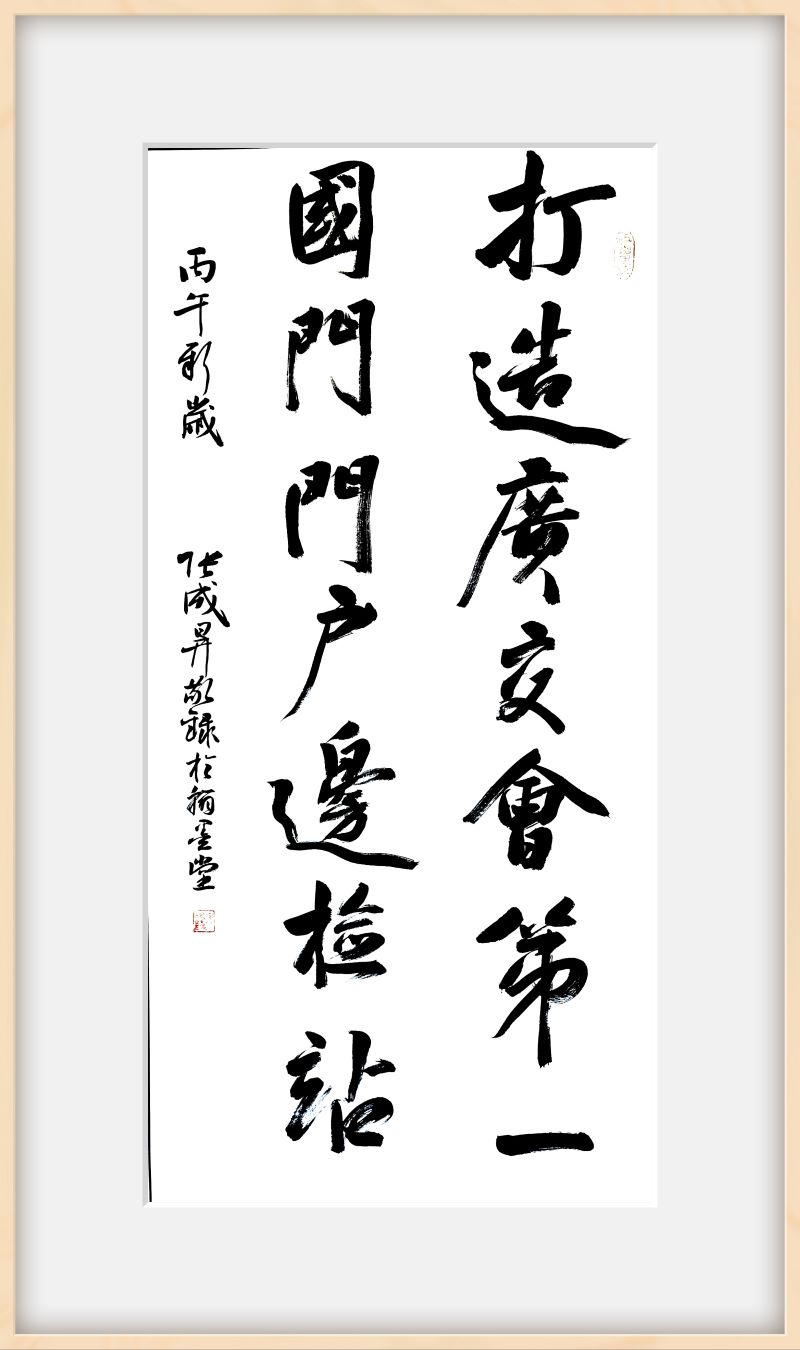 打造廣交會第一
國門門户邊檢站
丙午新歲
张成昇敬録於翰墨堂